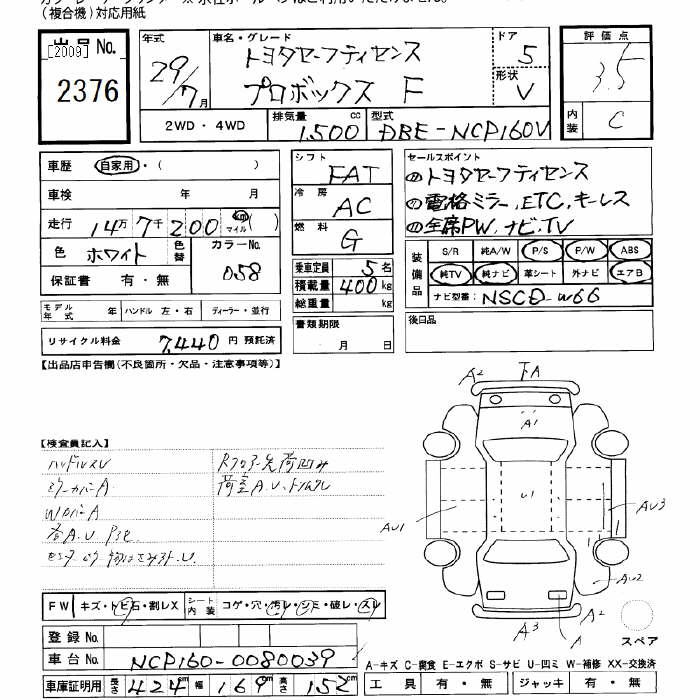 (複合機)対応用紙
出品No.
[2009]
2376
年式 29/7月
車名・グレード トヨタセーフティセンス
プロボックス F
ドア 5
形状 V
評価点 3.5
内装 C
2WD・4WD
排気量 1500 cc
型式 DBE-NCP160V
車歴 自家用・( )
車検 年 月
走行 14万7千200 km マイル ( )
色 ホワイト 色替 カラーNo. 058
保証書 有・無
モデル年式 年 ハンドル 左・右 ディーラー・並行
リサイクル料金 7,440 円 預託済
シフト FAT
冷房 AC
燃料 G
乗車定員 5名
積載量 400 kg
総重量 kg
書類期限 月 日
セールスポイント
トヨタセーフティセンス
電格ミラー、ETC、キーレス
全席PW、ナビ、TV
装備品 S/R 純A/W P/S P/W ABS
純TV 純ナビ 革シート 外ナビ エアB
ナビ型番: NSCD-W66
後日品
【出品店申告欄(不良箇所・欠品・注意事項等)】
【検査員記入】
ハンドルスレ
ミラーカバーA
荷室A.U、トリムスレ
A2
A1
U1
AU1
AU3
AU2
A2
A3
A
スペア
FW キズ・トビ石・割レX シート内装 コゲ・穴・汚レ・シミ・破レ・スレ
登録No.
車台No. NCP160-0080039
車庫証明用 長さ 424 cm 幅 169 cm 高さ 152 cm
A-キズ C-腐食 E-エクボ S-サビ U-凹ミ W-補修 XX-交換済
工具 有・無 ジャッキ 有・無